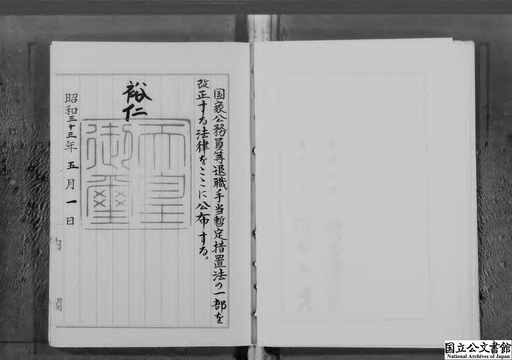 国家公務員等退職手当暫定措置法の一部を
改正する法律をここに公布する。
裕仁
天皇
御璽
昭和三十三年五月一日
国立公文書館
National Archives of Japan